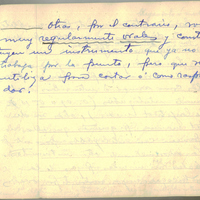 Otras, por el contrario, so
muy regularmente orales y const
uyen un instrumento que ya no
trabaja por la punta, sino que se
utiliza para cortar o como raspa
dor.